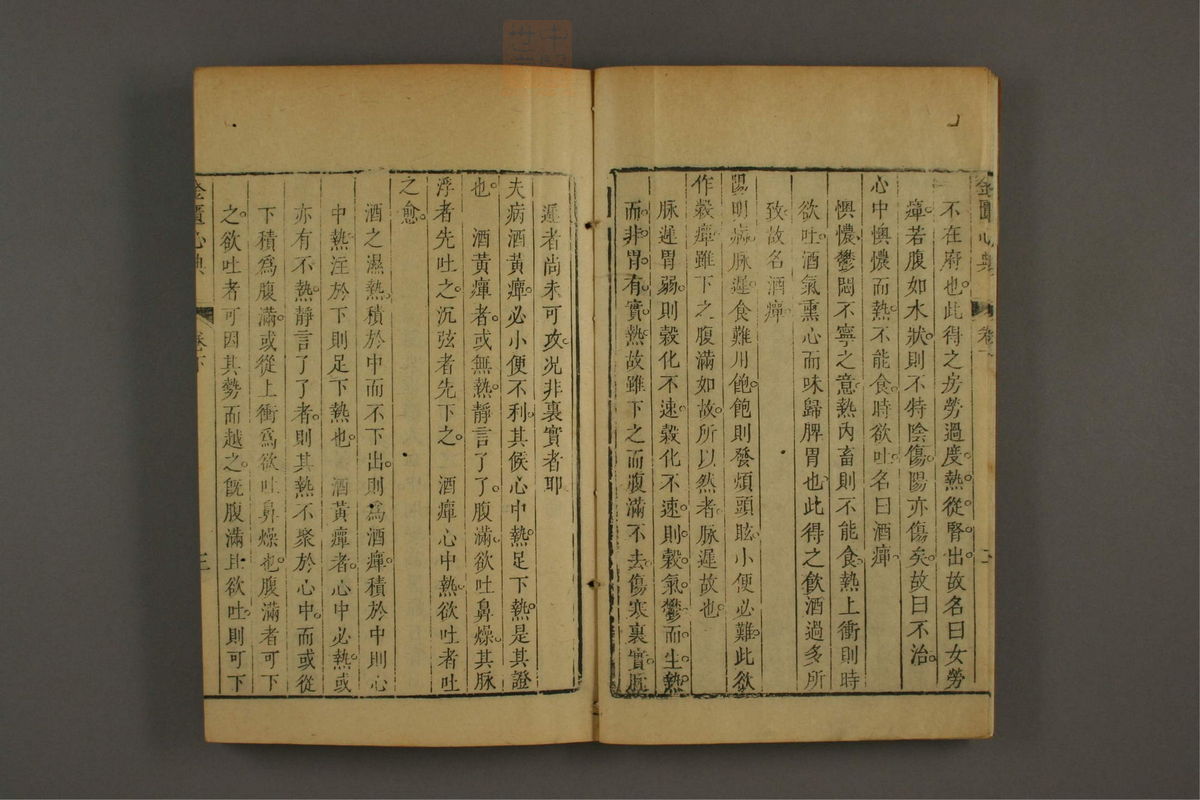 金匱心典 卷下 二
不在府也此得之房勞過度熱從腎出故名曰女勞
癉若腹如水狀則不特陰傷陽亦傷矣故曰不治
心中懊憹而熱不能食時欲吐名曰酒癉
懊憹鬱悶不寧之意熱內畜則不能食熱上衝則時
欲吐酒氣熏心而味歸脾胃也此得之飲酒過多所
致故名酒癉
陽明病脉遲食難用飽飽則發煩頭眩小便必難此欲
作穀癉雖下之腹滿如故所以然者脉遲故也
脉遲胃弱則穀化不速穀化不速則穀氣鬱而生熱
而非胃有實熱故雖下之而腹滿不去傷寒裏實脉
遲者尚未可攻况非裏實者耶
夫病酒黃癉必小便不利其候心中熱足下熱是其證
也 酒黃癉者或無熱靜言了了腹滿欲吐鼻燥其脉
浮者先吐之沉弦者先下之 酒癉心中熱欲吐者吐
之愈
酒之濕熱積於中而不下出則為酒癉積於中則心
中熱注於下則足下熱也 酒黃癉者心中必熱或
亦有不熱靜言了了者則其熱不聚於心中而或從
下積為腹滿或從上衝為欲吐鼻燥也腹滿者可下
之欲吐者可因其勢而越之旣腹滿且欲吐則可下
金匱心典 卷下 三